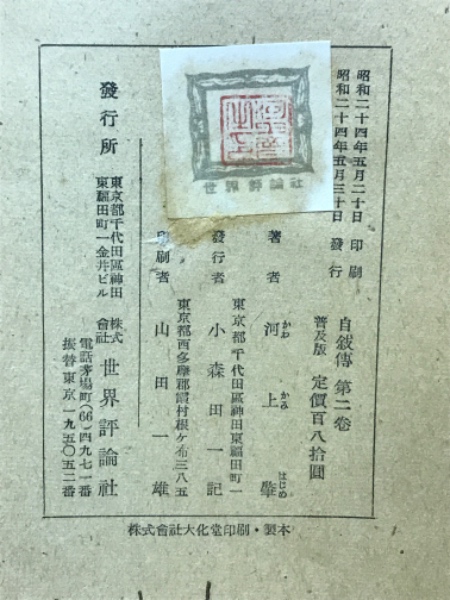 昭和二十四年五月二十日 印刷
昭和二十四年五月三十日 發行
自敍傳 第二卷
普及版 定價百八拾圓
著者 河上肇
かわ かみ はじめ
東京都千代田區神田東福田町一
發行者 小森田一記
東京都西多摩郡霞村根ケ布三八五
印刷者 山田一雄
發行所
東京都千代田區神田
東福田町一金井ビル
株式會社 世界評論社
電話茅場町(66)四九七一番
振替東京一九五〇五二番
世界評論社
株式會社大化堂印刷・製本